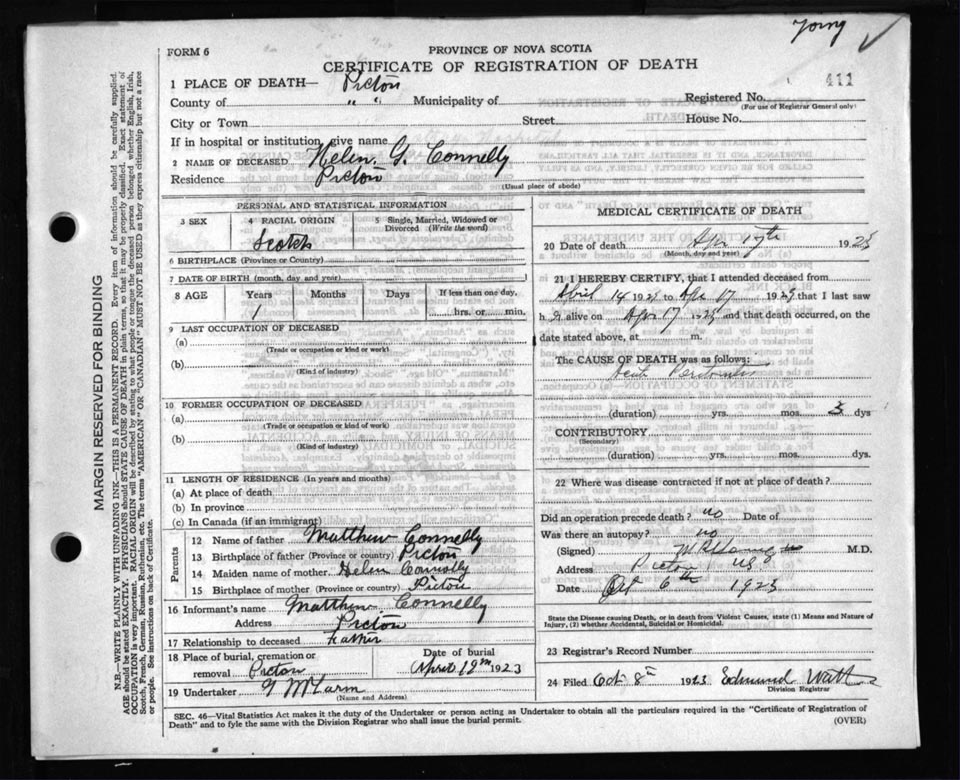 Young ✓
FORM 6
PROVINCE OF NOVA SCOTIA
CERTIFICATE OF REGISTRATION OF DEATH
411
1 PLACE OF DEATH— Pictou
County of " " Municipality of Registered No.
(For use of Registrar General only)
City or Town Street House No.
If in hospital or institution, give name
2 NAME OF DECEASED Helen. G. Connelly
Residence Pictou
(Usual place of abode)
PERSONAL AND STATISTICAL INFORMATION
3 SEX 4 RACIAL ORIGIN 5 Single, Married, Widowed or Divorced (Write the word)
Scotch
6 BIRTHPLACE (Province or Country)
7 DATE OF BIRTH (month, day, and year)
8 AGE Years Months Days If less than one day,
1 hrs. or min.
9 LAST OCCUPATION OF DECEASED
(a)
(Trade or occupation or kind or work)
(b)
(Kind of industry)
10 FORMER OCCUPATION OF DECEASED
(a)
(Trade or occupation or kind or work)
(b)
(Kind of industry)
11 LENGTH OF RESIDENCE (In years and months)
(a) At place of death
(b) In province
(c) In Canada (if an immigrant)
Parents
12 Name of father Matthew Connelly
13 Birthplace of father (Province or country) Pictou
14 Maiden name of mother Helen Connolly
15 Birthplace of mother (Province or country) Pictou
16 Informant's name Matthew Connelly
Address Pictou
17 Relationship to deceased Father
18 Place of burial, cremation or Date of burial
removal Pictou April 19th 1923
19 Undertaker
(Name and Address)
MEDICAL CERTIFICATE OF DEATH
20 Date of death Apr 17th 1923
(Month, day and year)
21 I HEREBY CERTIFY, that I attended deceased from
April 14 1923 to Apr 17 1923 that I last saw
h alive on Apr 17 1923 and that death occurred, on the
date stated above, at m.
The CAUSE OF DEATH was as follows:
Acute Peritonitis
(duration) yrs. mos. 3 dys
CONTRIBUTORY
(Secondary)
(duration) yrs. mos. dys.
22 Where was disease contracted if not at place of death?
Did an operation precede death? no Date of
Was there an autopsy? no
(Signed) M.D.
Address Pictou NS
Date Oct 6th 1923
State the Disease causing Death, or in death from Violent Causes, state (1) Means and Nature of
Injury, (2) whether Accidental, Suicidal or Homicidal.
23 Registrar's Record Number
24 Filed Oct 8th 1923 Edmund Watt
Division Registrar
SEC. 46—Vital Statistics Act makes it the duty of the Undertaker or person acting as Undertaker to obtain all the particulars required in the "Certificate of Registration of
Death" and to fyle the same with the Division Registrar who shall issue the burial permit.
(OVER)
MARGIN RESERVED FOR BINDING
N.B.—WRITE PLAINLY WITH UNFADING INK—THIS IS A PERMANENT RECORD. Every item of information should be carefully supplied.
AGE should be stated EXACTLY. PHYSICIANS should STATE CAUSE OF DEATH in plain terms, so that it may be properly classified. Exact statement of
OCCUPATION is very important. RACIAL ORIGIN will be described by stating to what people or tongue the deceased person belonged whether English, Irish,
Scotch, French, German, Russian, Ruthenian, etc. The terms "AMERICAN" OR "CANADIAN" MUST NOT BE USED as they express citizenship but not a race
or people. See instructions on back of Certificate.